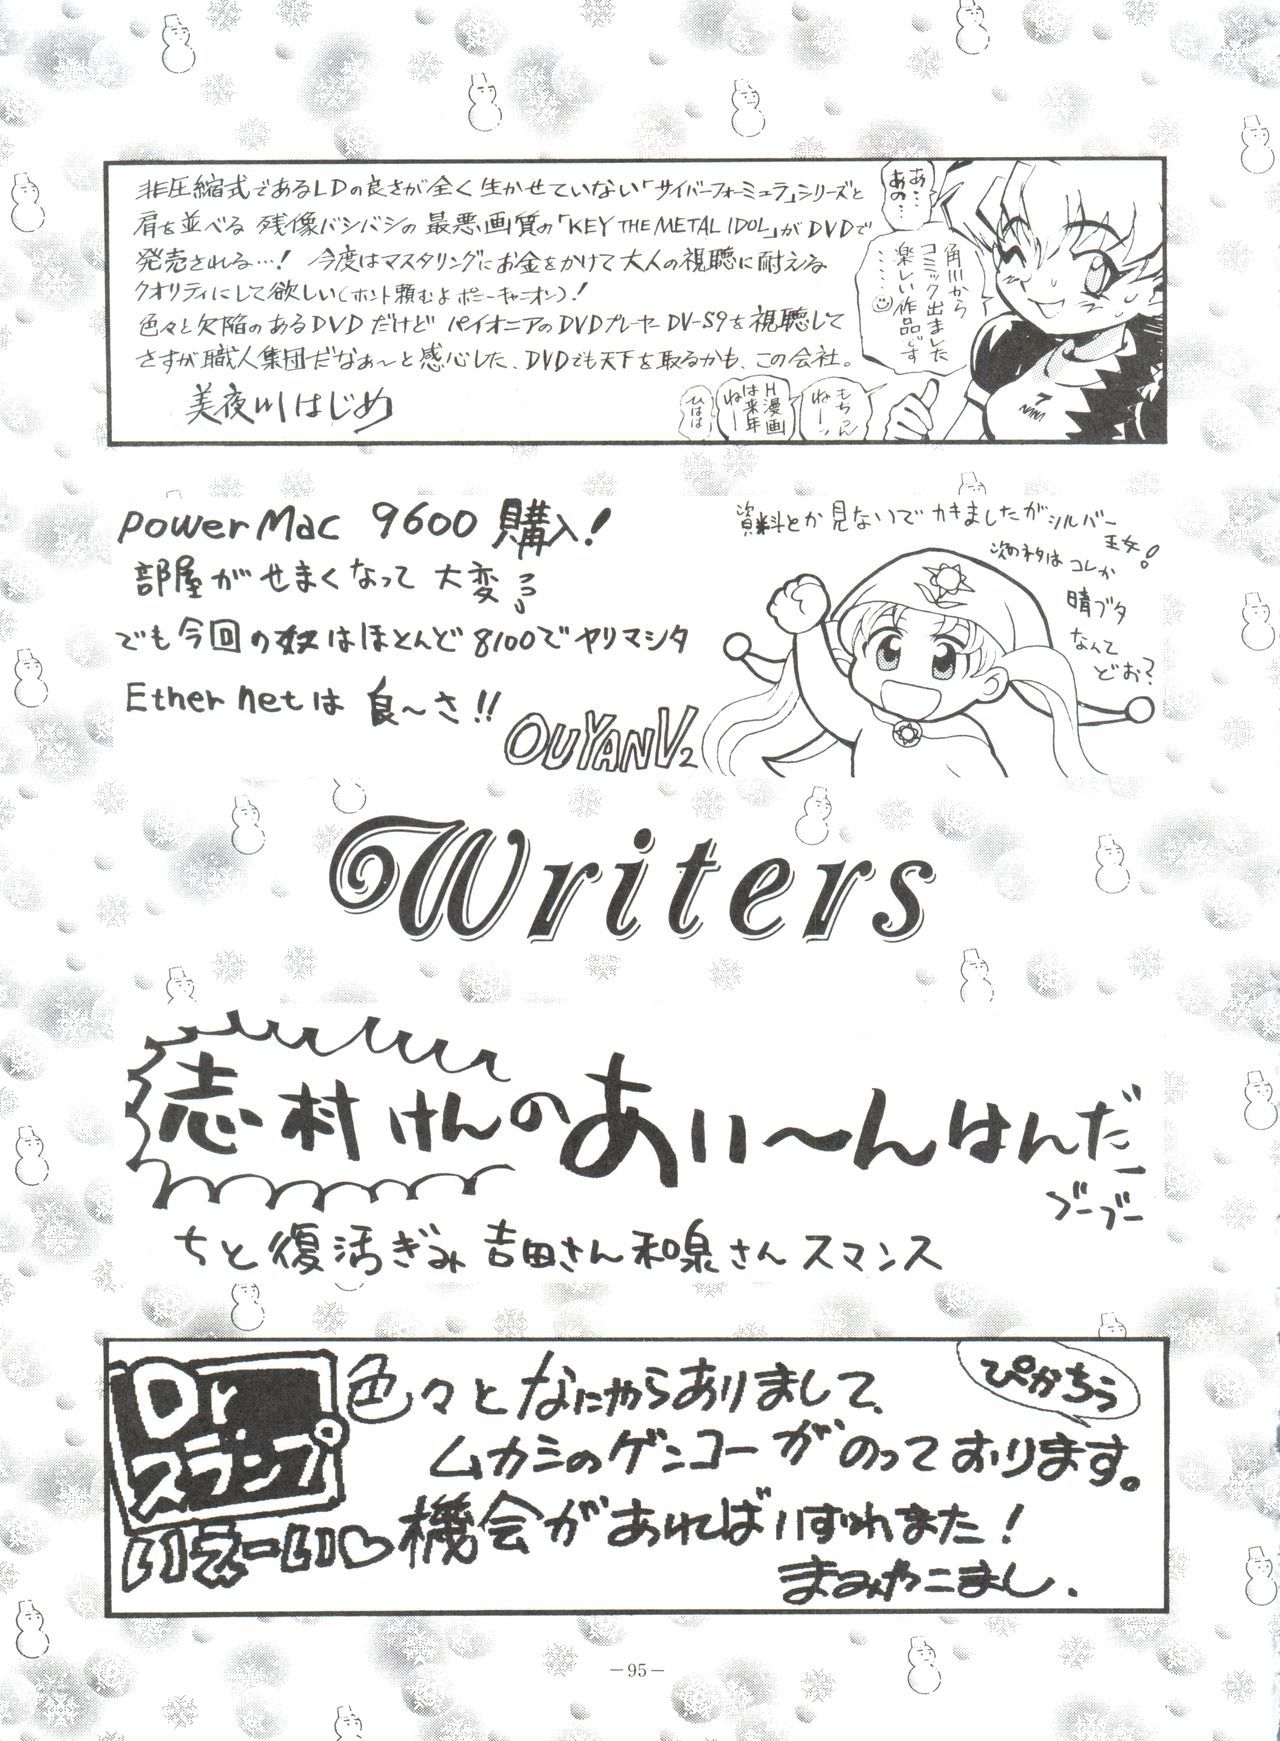 非圧縮式であるLDの良さが全く生かせていない「サイバーフォーミュラ」シリーズと
肩を並べる 残像バシバシの最悪画質の「KEY THE METAL IDOL」がDVDで
発売される…! 今度はマスタリングにお金をかけて大人の視聴に耐える
クオリティにして欲しい(ホント頼むよポニーキャニオン)!
色々と欠陥のあるDVDだけど パイオニアのDVDプレーヤーDV-S9を視聴して
さすが職人集団だなぁ〜と感心した、DVDでも天下を取るかも、この会社。
美夜川はじめ
あ…
あの…
角川から
コミック出ました
楽しい作品です
……☺
もちろん
ねーッ
H漫画
は来年
ねー
ひはは
Power Mac 9600 購入!
部屋がせまくなって大変
でも今回の奴はほとんど8100でヤリマシタ
Ether netは 良〜さ!!
OUYANV2
資料とか見ないでかきましたがシルバー
王女!
次のネタはコレか
晴ブタ
なんて
どお?
Writers
志村けんのあぃ〜んはんだー
ブーブー
ちと復活ぎみ 吉田さん和泉さん スマンス
Dr
スランプ
色々となにやらありまして、
ぴかちう
ムカシのゲンコーがのっております。
いえーい♡機会があればいずれまた!
まみやこまし.
—95—